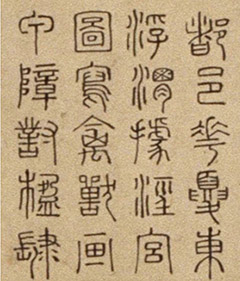 都邑華夏東
浮渭據涇宮
圖寫禽獸画
甲障對楹肆